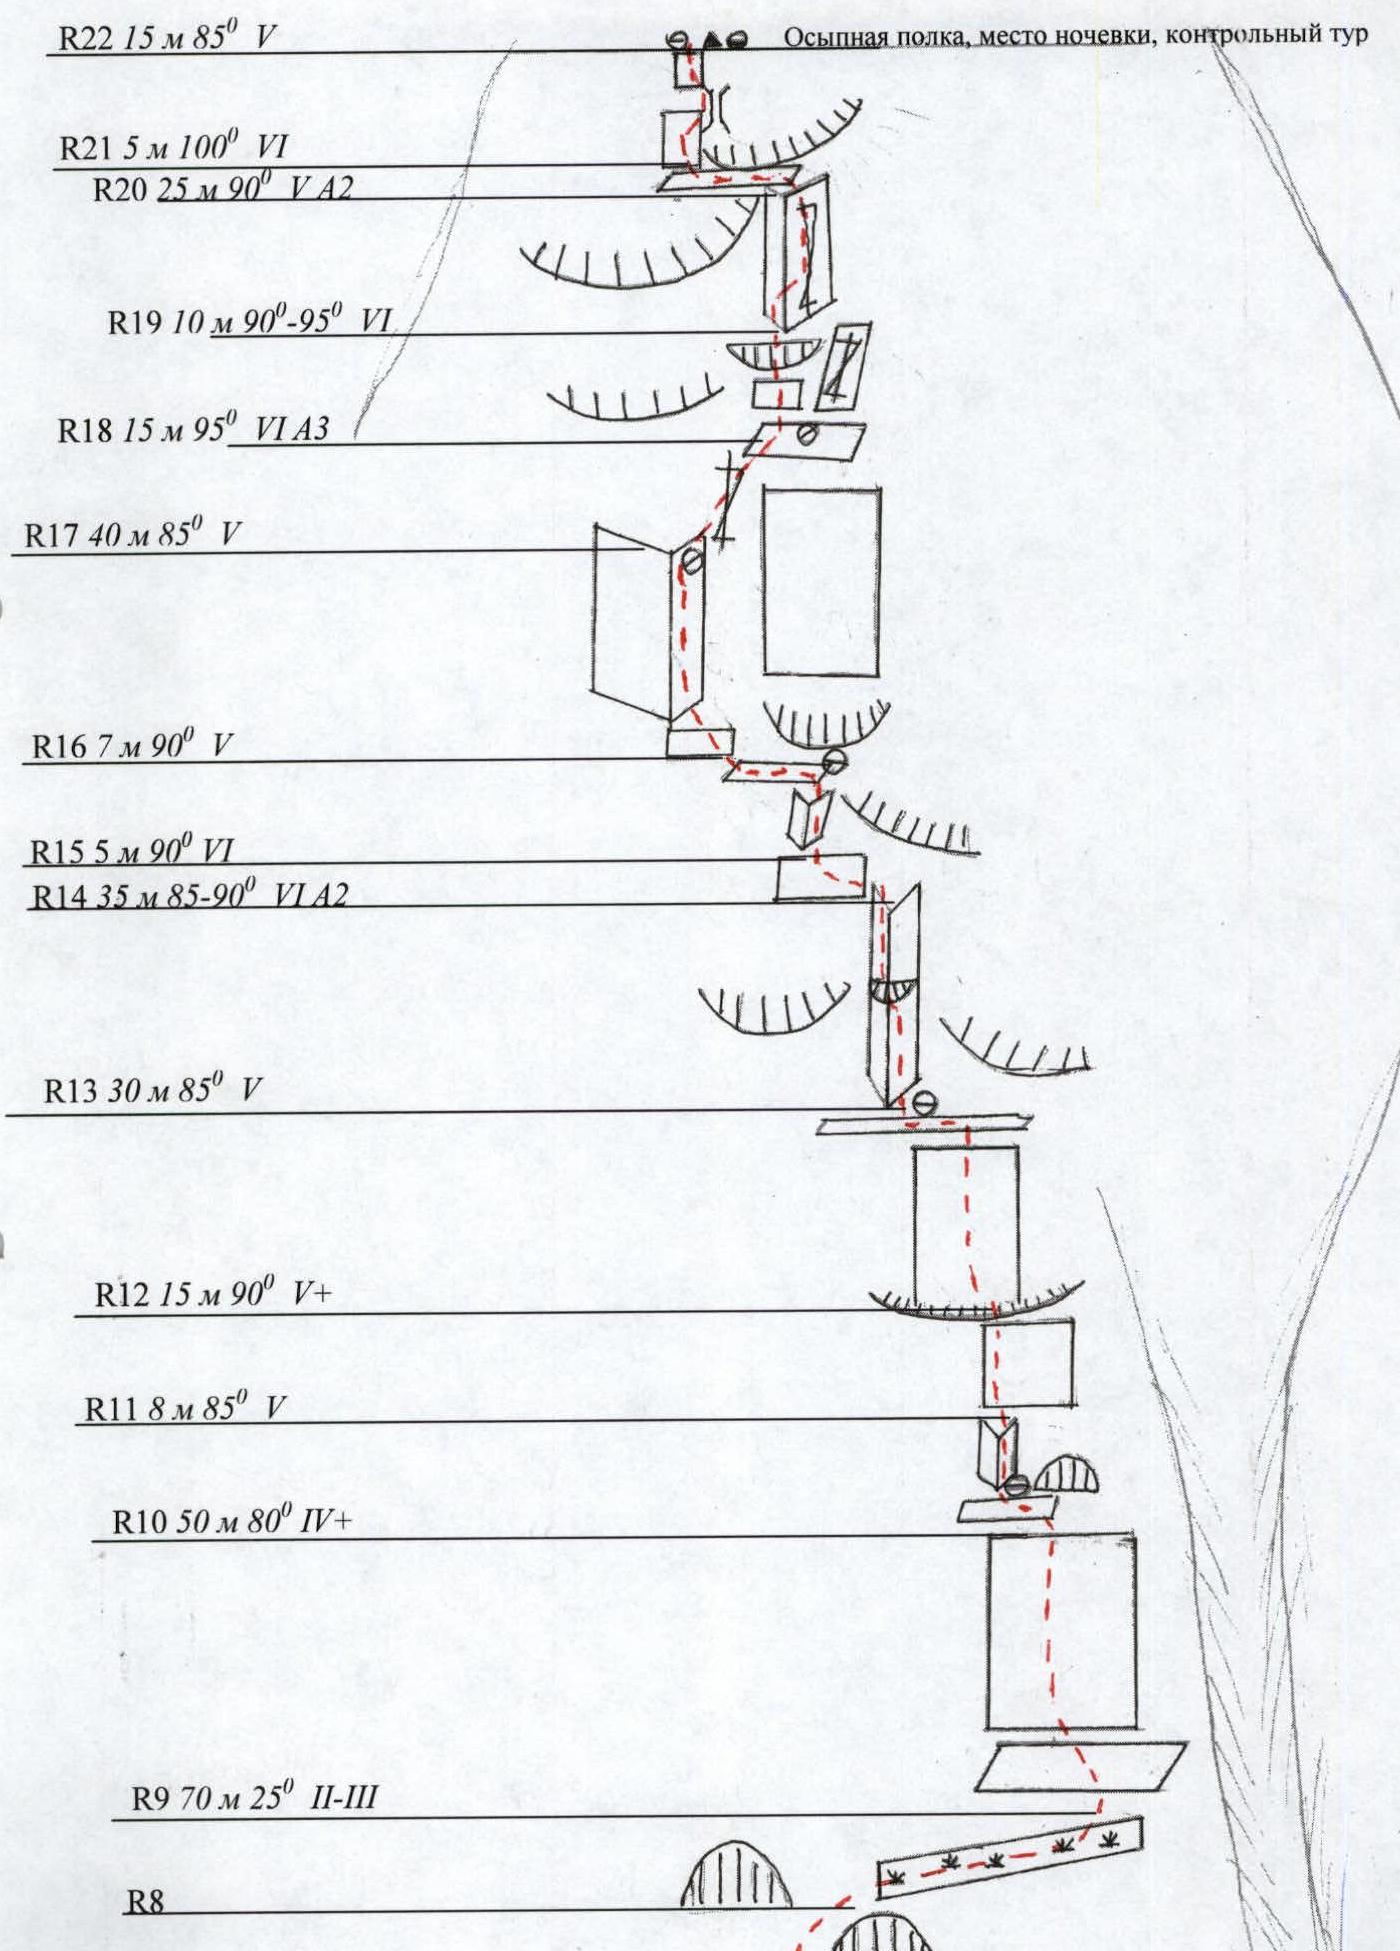 R22 15 м 85⁰ V Осыпная полка, место ночевки, контрольный тур
R21 5 м 100⁰ VI
R20 25 м 90⁰ V A2
R19 10 м 90⁰-95⁰ VI
R18 15 м 95⁰ VI A3
R17 40 м 85⁰ V
R16 7 м 90⁰ V
R15 5 м 90⁰ VI
R14 35 м 85-90⁰ VI A2
R13 30 м 85⁰ V
R12 15 м 90⁰ V+
R11 8 м 85⁰ V
R10 50 м 80⁰ IV+
R9 70 м 25⁰ II-III
R8